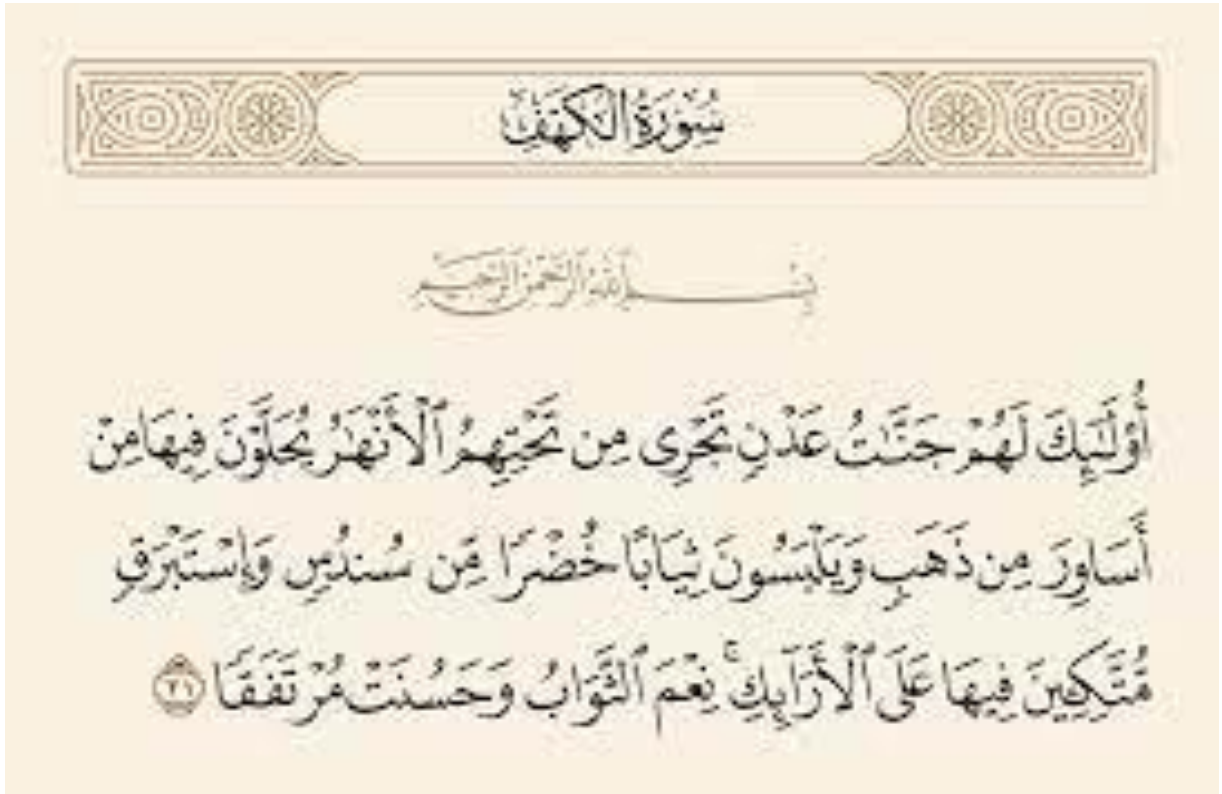 سُورَةُ الكَهْفِ
بِسْمِ ٱللَّهِ ٱلرَّحْمَٰنِ ٱلرَّحِيمِ
أُوْلَٰٓئِكَ لَهُمْ جَنَّٰتُ عَدْنٍ تَجْرِى مِن تَحْتِهِمُ ٱلْأَنْهَٰرُ يُحَلَّوْنَ فِيهَا مِنْ
أَسَاوِرَ مِن ذَهَبٍ وَيَلْبَسُونَ ثِيَابًا خُضْرًا مِّن سُندُسٍ وَإِسْتَبْرَقٍ
مُّتَّكِـِٔينَ فِيهَا عَلَى ٱلْأَرَآئِكِ ۚ نِعْمَ ٱلثَّوَابُ وَحَسُنَتْ مُرْتَفَقًا ٣١